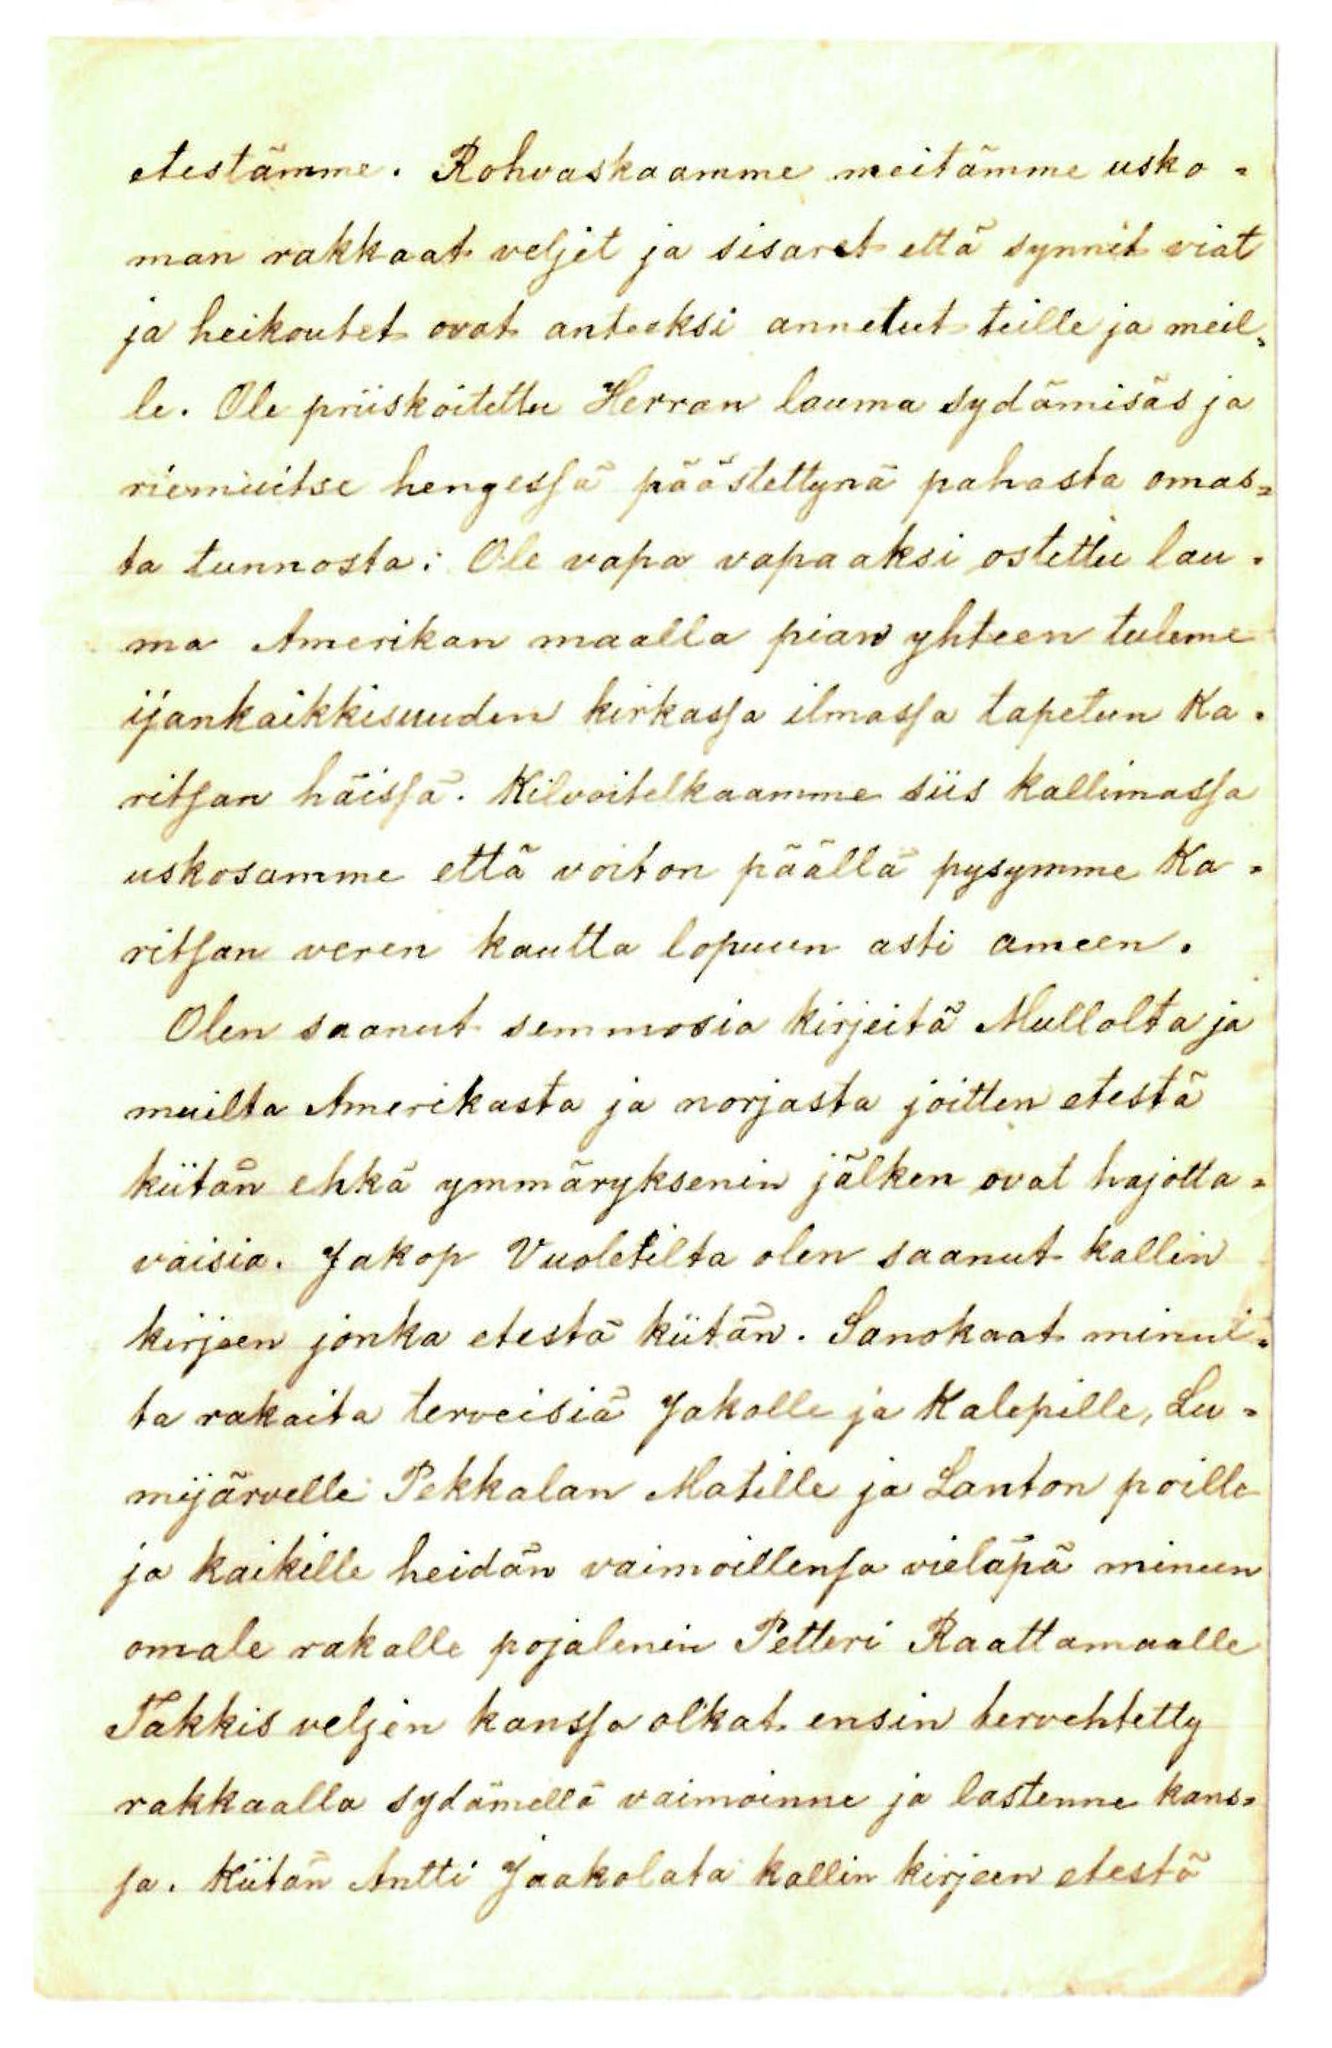 etestämme. Rohvaskaamme meitämme usko-
man rakkaat veljet ja sisaret että synnit viat
ja heikoutet ovat anteeksi annetut teille ja meil-
le. Ole priiskoitettu Herran lauma sydämisäs ja
riemuitse hengessä päästettynä pahasta omas-
ta tunnosta: Ole vapa vapaaksi ostettu lau-
ma Amerikan maalla pian yhteen tuleme
ijankaikkisuuden kirkassa ilmassa tapetun Ka-
ritsan häissä. Kilvoitelkaamme siis kallimassa
uskosamme että voiton päällä pysymme Ka-
ritsan veren kautta lopuun asti ameen.
Olen saanut semmosia kirjeitä Mullolta ja
muilta Amerikasta ja norjasta joitten etestä
kiitän ehkä ymmäryksenin jälken ovat hajotta-
vaisia. Jakop Vuoletilta olen saanut kallin
kirjeen jonka etestä kiitän. Sanokaat minul-
ta rakaita terveisiä Jakolle ja Kalepille, Lu-
mijärvelle Pekkalan Matille ja Lanton poille
ja kaikille heidän vaimoillensa vieläpä minun
omale rakalle pojalenin Petteri Raattamaalle
Takkis veljen kanssa olkat ensin tervehtetty
rakkaalla sydämellä vaimoinne ja lastenne kans-
sa. Kiitän Antti Jaakolata kallin kirjeen etestä